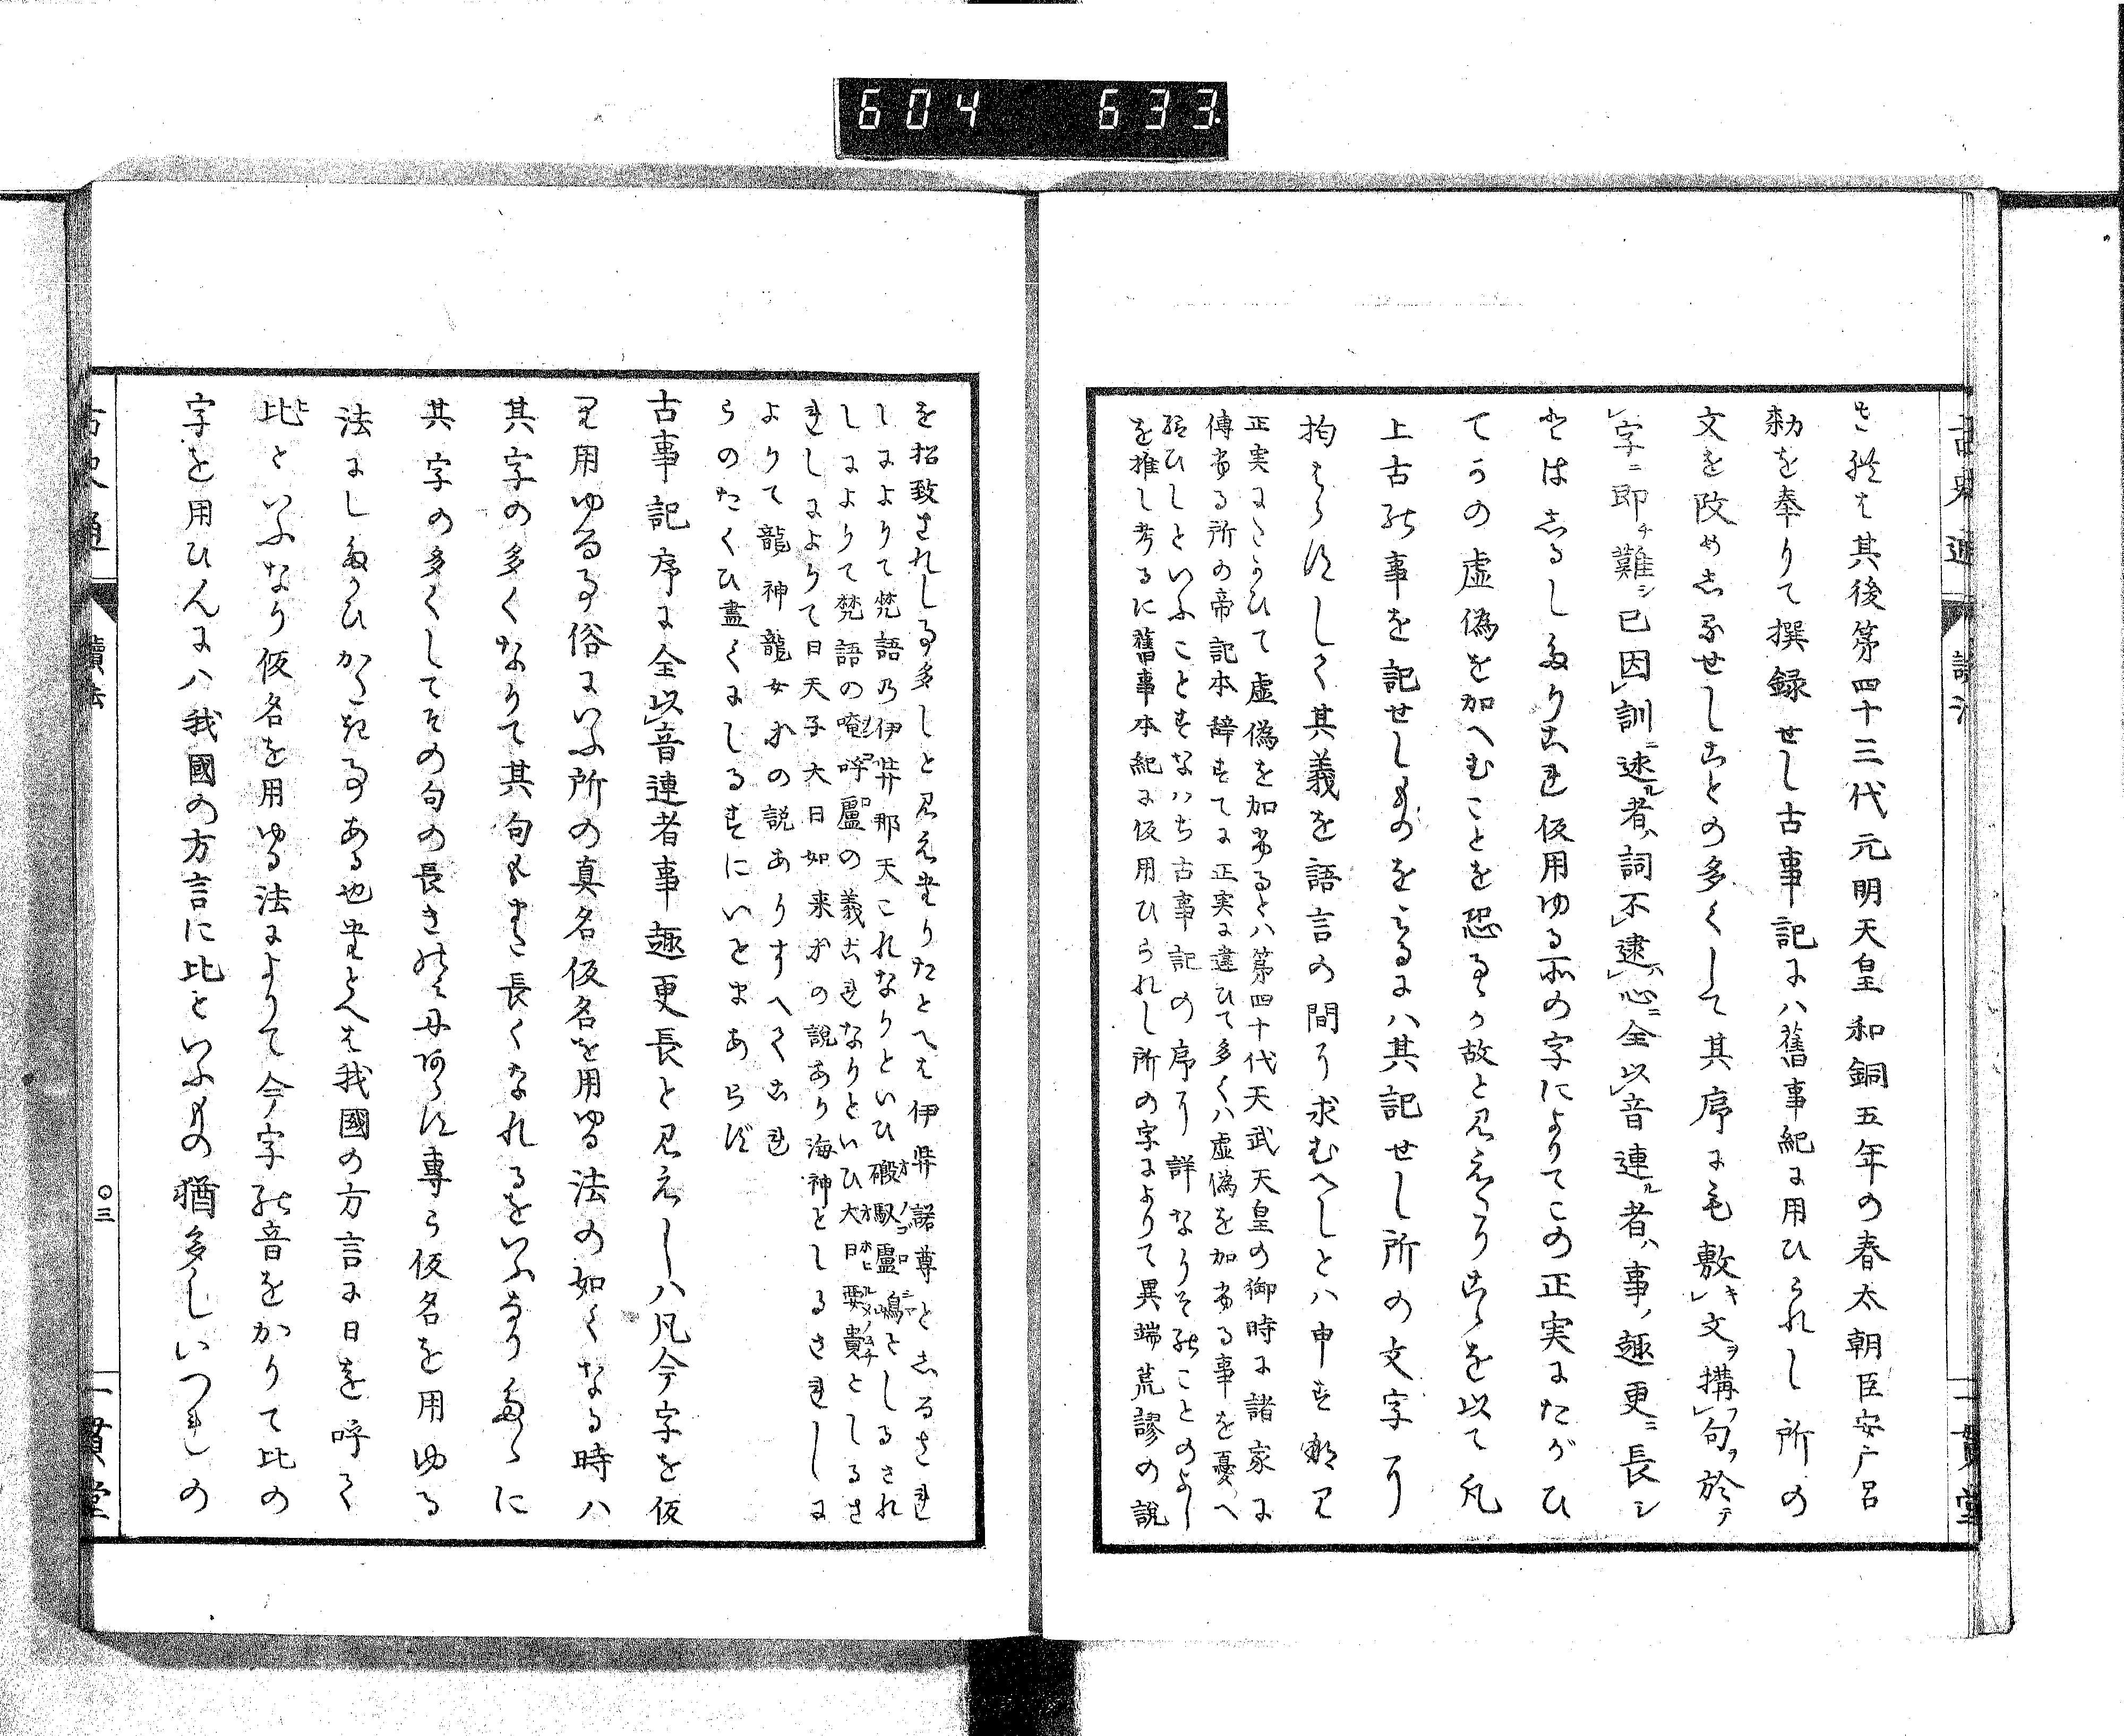 604 633
古史通 讀法 一貫堂
され𛂞其後第四十三代元明天皇和銅五年の春太朝臣安广呂
勅を奉りて撰録せし古事記にハ舊事紀に用ひられし所の
文を改めしるせしことの多くして其序にも敷キ文ヲ構フ句ヲ於テ
字ニ即チ難シ已因訓ニ述ル者ハ詞不逮ハ心ニ全以音連ル者ハ事ノ趣更ニ長シ
とはしるしたりこれ仮用ゆる所の字によりてこの正実にたがひ
てかの虚偽を加へむことを恐るゝか故と見えたりこゝを以て凡
上古の事を記せしものをみるにハ其記せし所の文字に
拘はらすして其義を語言の間に求むへしとハ申す也
正実にたかひて虚偽を加ふるとハ第四十代天武天皇の御時に諸家に
傳ふる所の帝記本辞すてに正実に違ひて多くハ虚偽を加ふる事を憂へ
給ひしといふことすなハち古事記の序に詳なりその
を推し考るに舊事本紀に仮用ひられし所の字によりて異端荒謬の説
を招致されし事多しと見えたりたとへは伊弉諾尊としるされ
しによりて梵語乃伊弉那天これなりといひ磤馭盧嶋としるされ
しによりて梵語の唵呼盧の義これなりといひ大日孁貴としるさ
れしによりて日天子大日如来等の説あり海神としるされしに
よりて龍神龍女等の説ありすへてこれ
らのたくひ盡くにしるすにいとまあらず
古事記序に全以音連者事趣更長と見えしハ凡今字を仮
て用ゆる事俗にいふ所の真名仮名を用ゆる法の如くなる時ハ
其字の多くなりて其句もまた長くなれるをいふなり
其字の多くしてその句の長きのミにあらす専ら仮名を用ゆる
法にしたかひかたき事ある也たとへは我國の方言に日を呼て
比といふなり仮名を用ゆる法によりて今字の音をかりて比の
字を用ひんにハ我國の方言に比といふもの猶多しいつれの
古史通 讀法 ○三 一貫堂